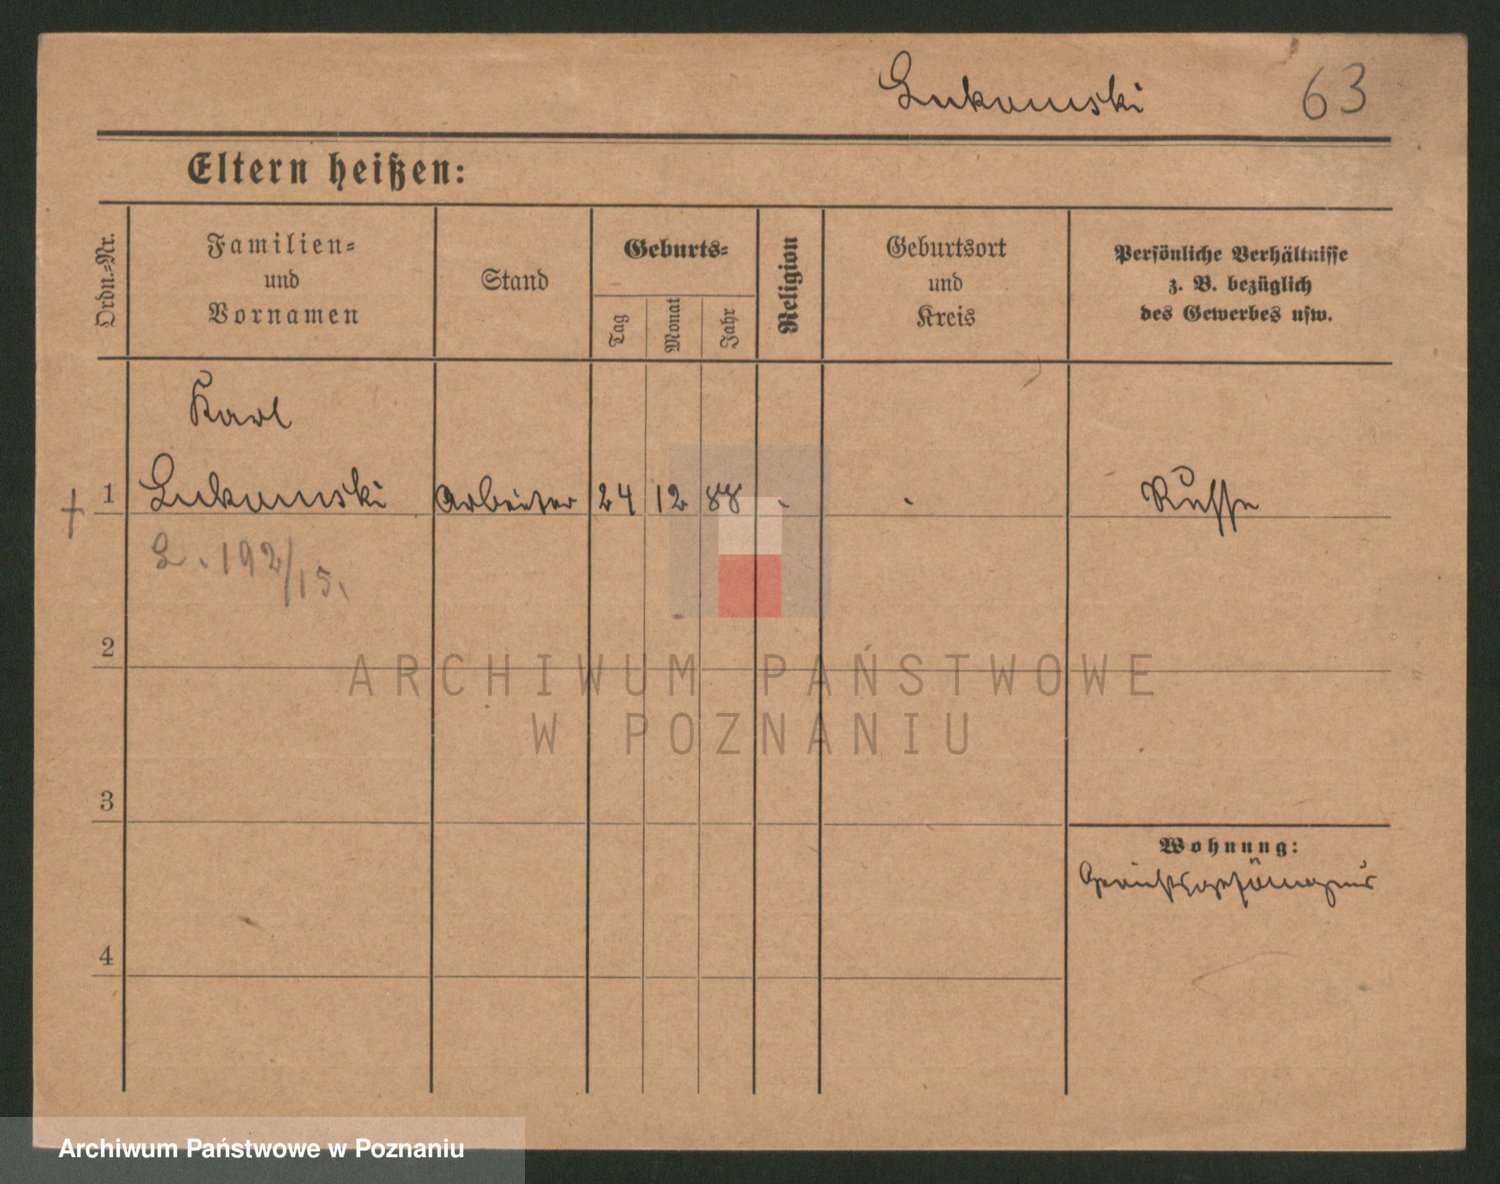 Lukomski 63
Eltern heißen:
Ordn.=Nr.
Familien=
und
Vornamen
Stand
Geburts=
Tag
Monat
Jahr
Religion
Geburtsort
und
Kreis
Persönliche Verhältnisse
z. B. bezüglich
des Gewerbes usw.
Karl
+ 1 Lukomski Arbeiter 24 12 88 - - Russe
L. 192/15.
2
ARCHIWUM PAŃSTWOWE
W POZNANIU
3
Wohnung:
Gerichtsgefängnis
4
Archiwum Państwowe w Poznaniu